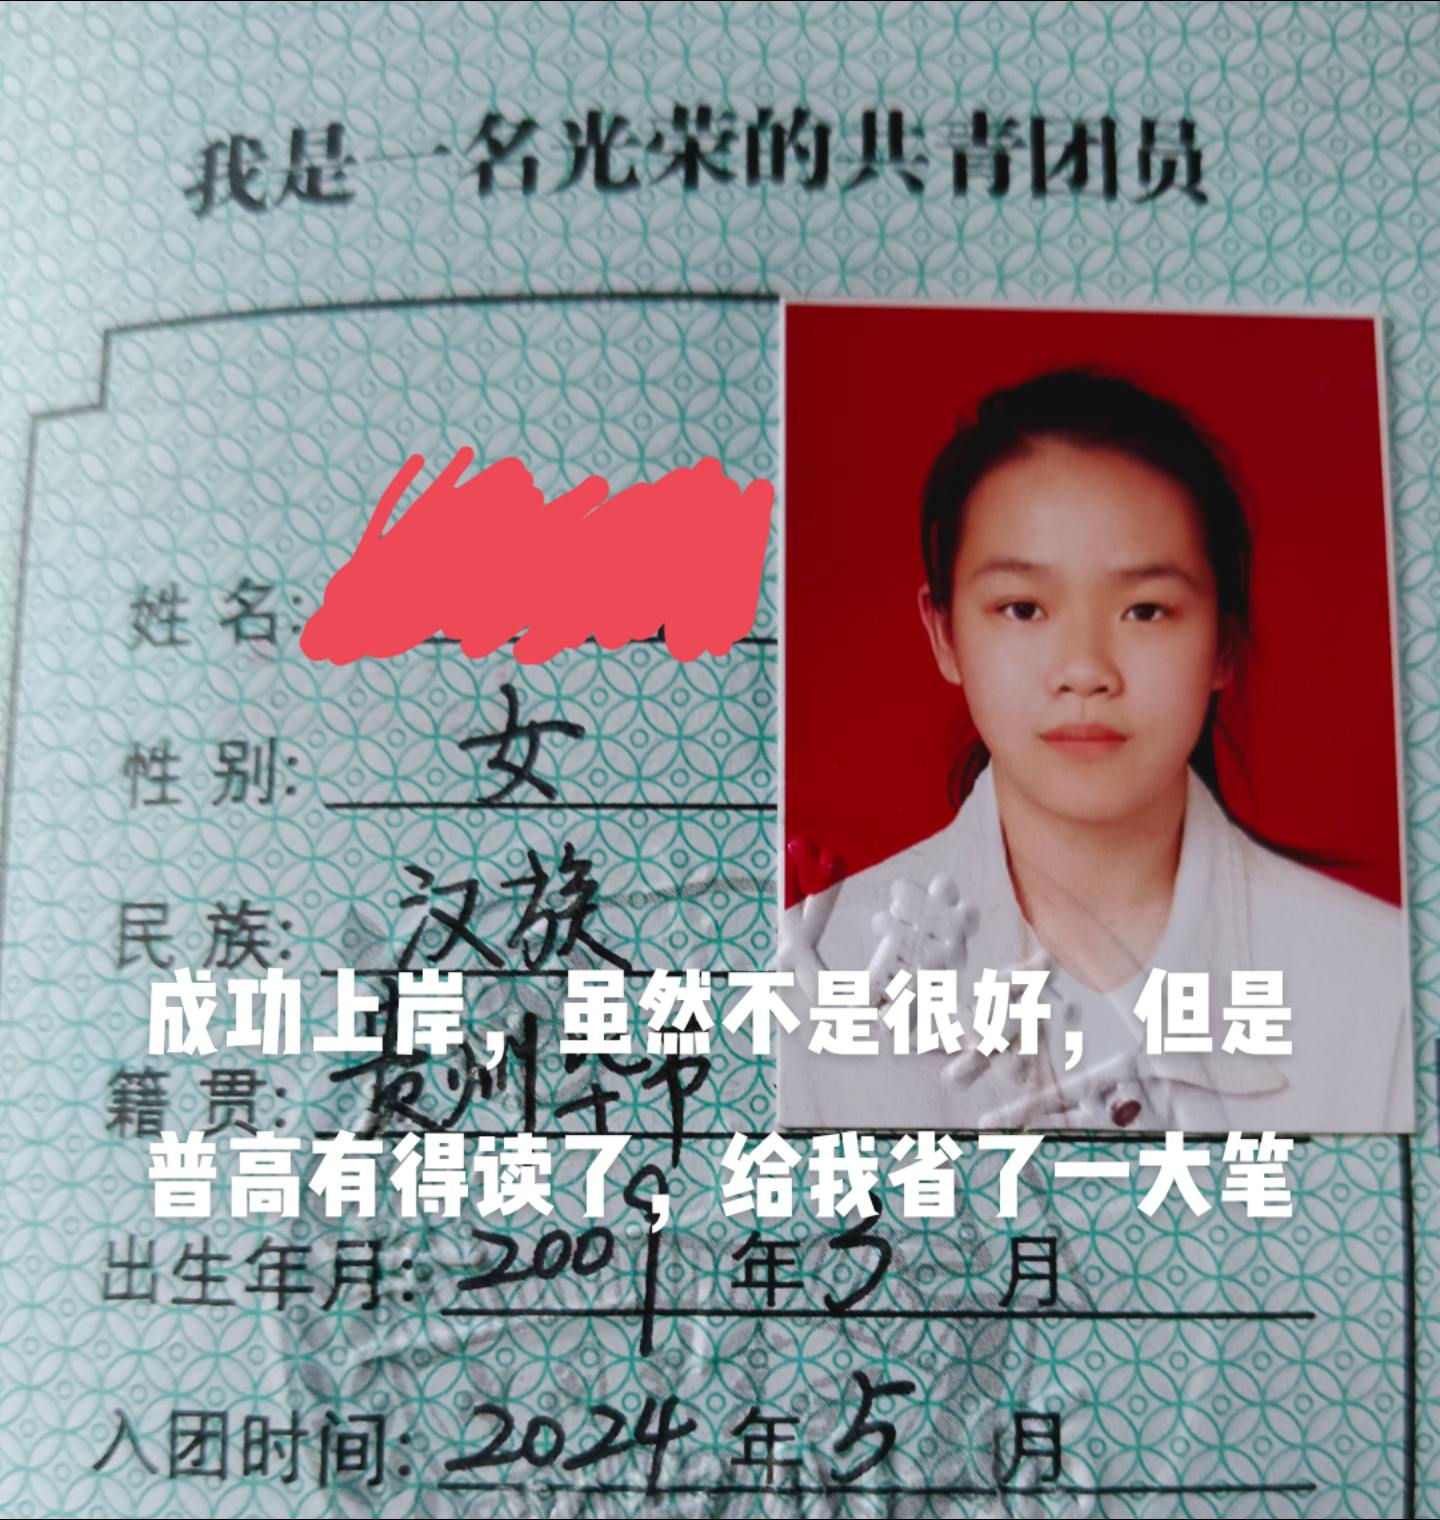 我是一名光荣的共青团员
姓名:
性别: 女
民族: 汉族
成功上岸，虽然不是很好，但是
籍贯: 贵州毕节
普高有得读了，给我省了一大笔
出生年月: 2009年3月
入团时间: 2024年5月